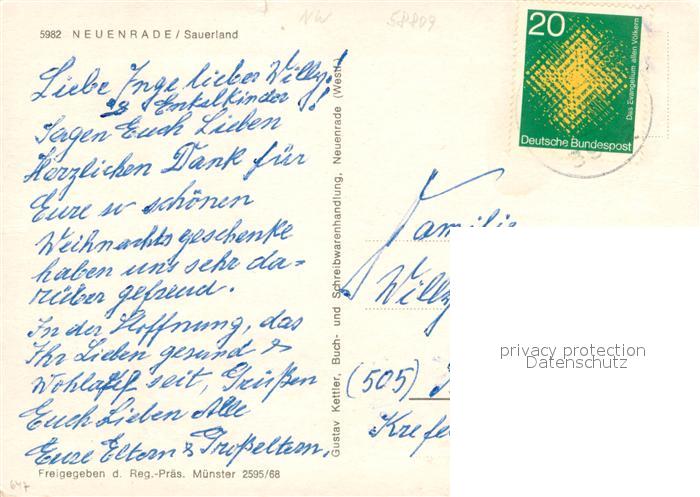 5982 NEUENRADE / Sauerland
NW
58809
20
Das Evangelium allen Völkern
Deutsche Bundespost
Liebe Inge lieber Willy!
& Enkelkinder
Sagen Euch Lieben
Herzlichen Dank für
Eure so schönen
Weihnachtsgeschenke
haben uns sehr da=
rüber gefreud.
In der Hoffnung, das
Ihr Lieben gesund &
Wohlauf seit, Grüßen
Euch Lieben Alle
Eure Eltern & Großeltern.
Gustav Kettler, Buch- und Schreibwarenhandlung, Neuenrade (Westf.)
Familie
Willy
(505)
Krefe
privacy protection
Datenschutz
Freigegeben d. Reg.-Präs. Münster 2595/68
647